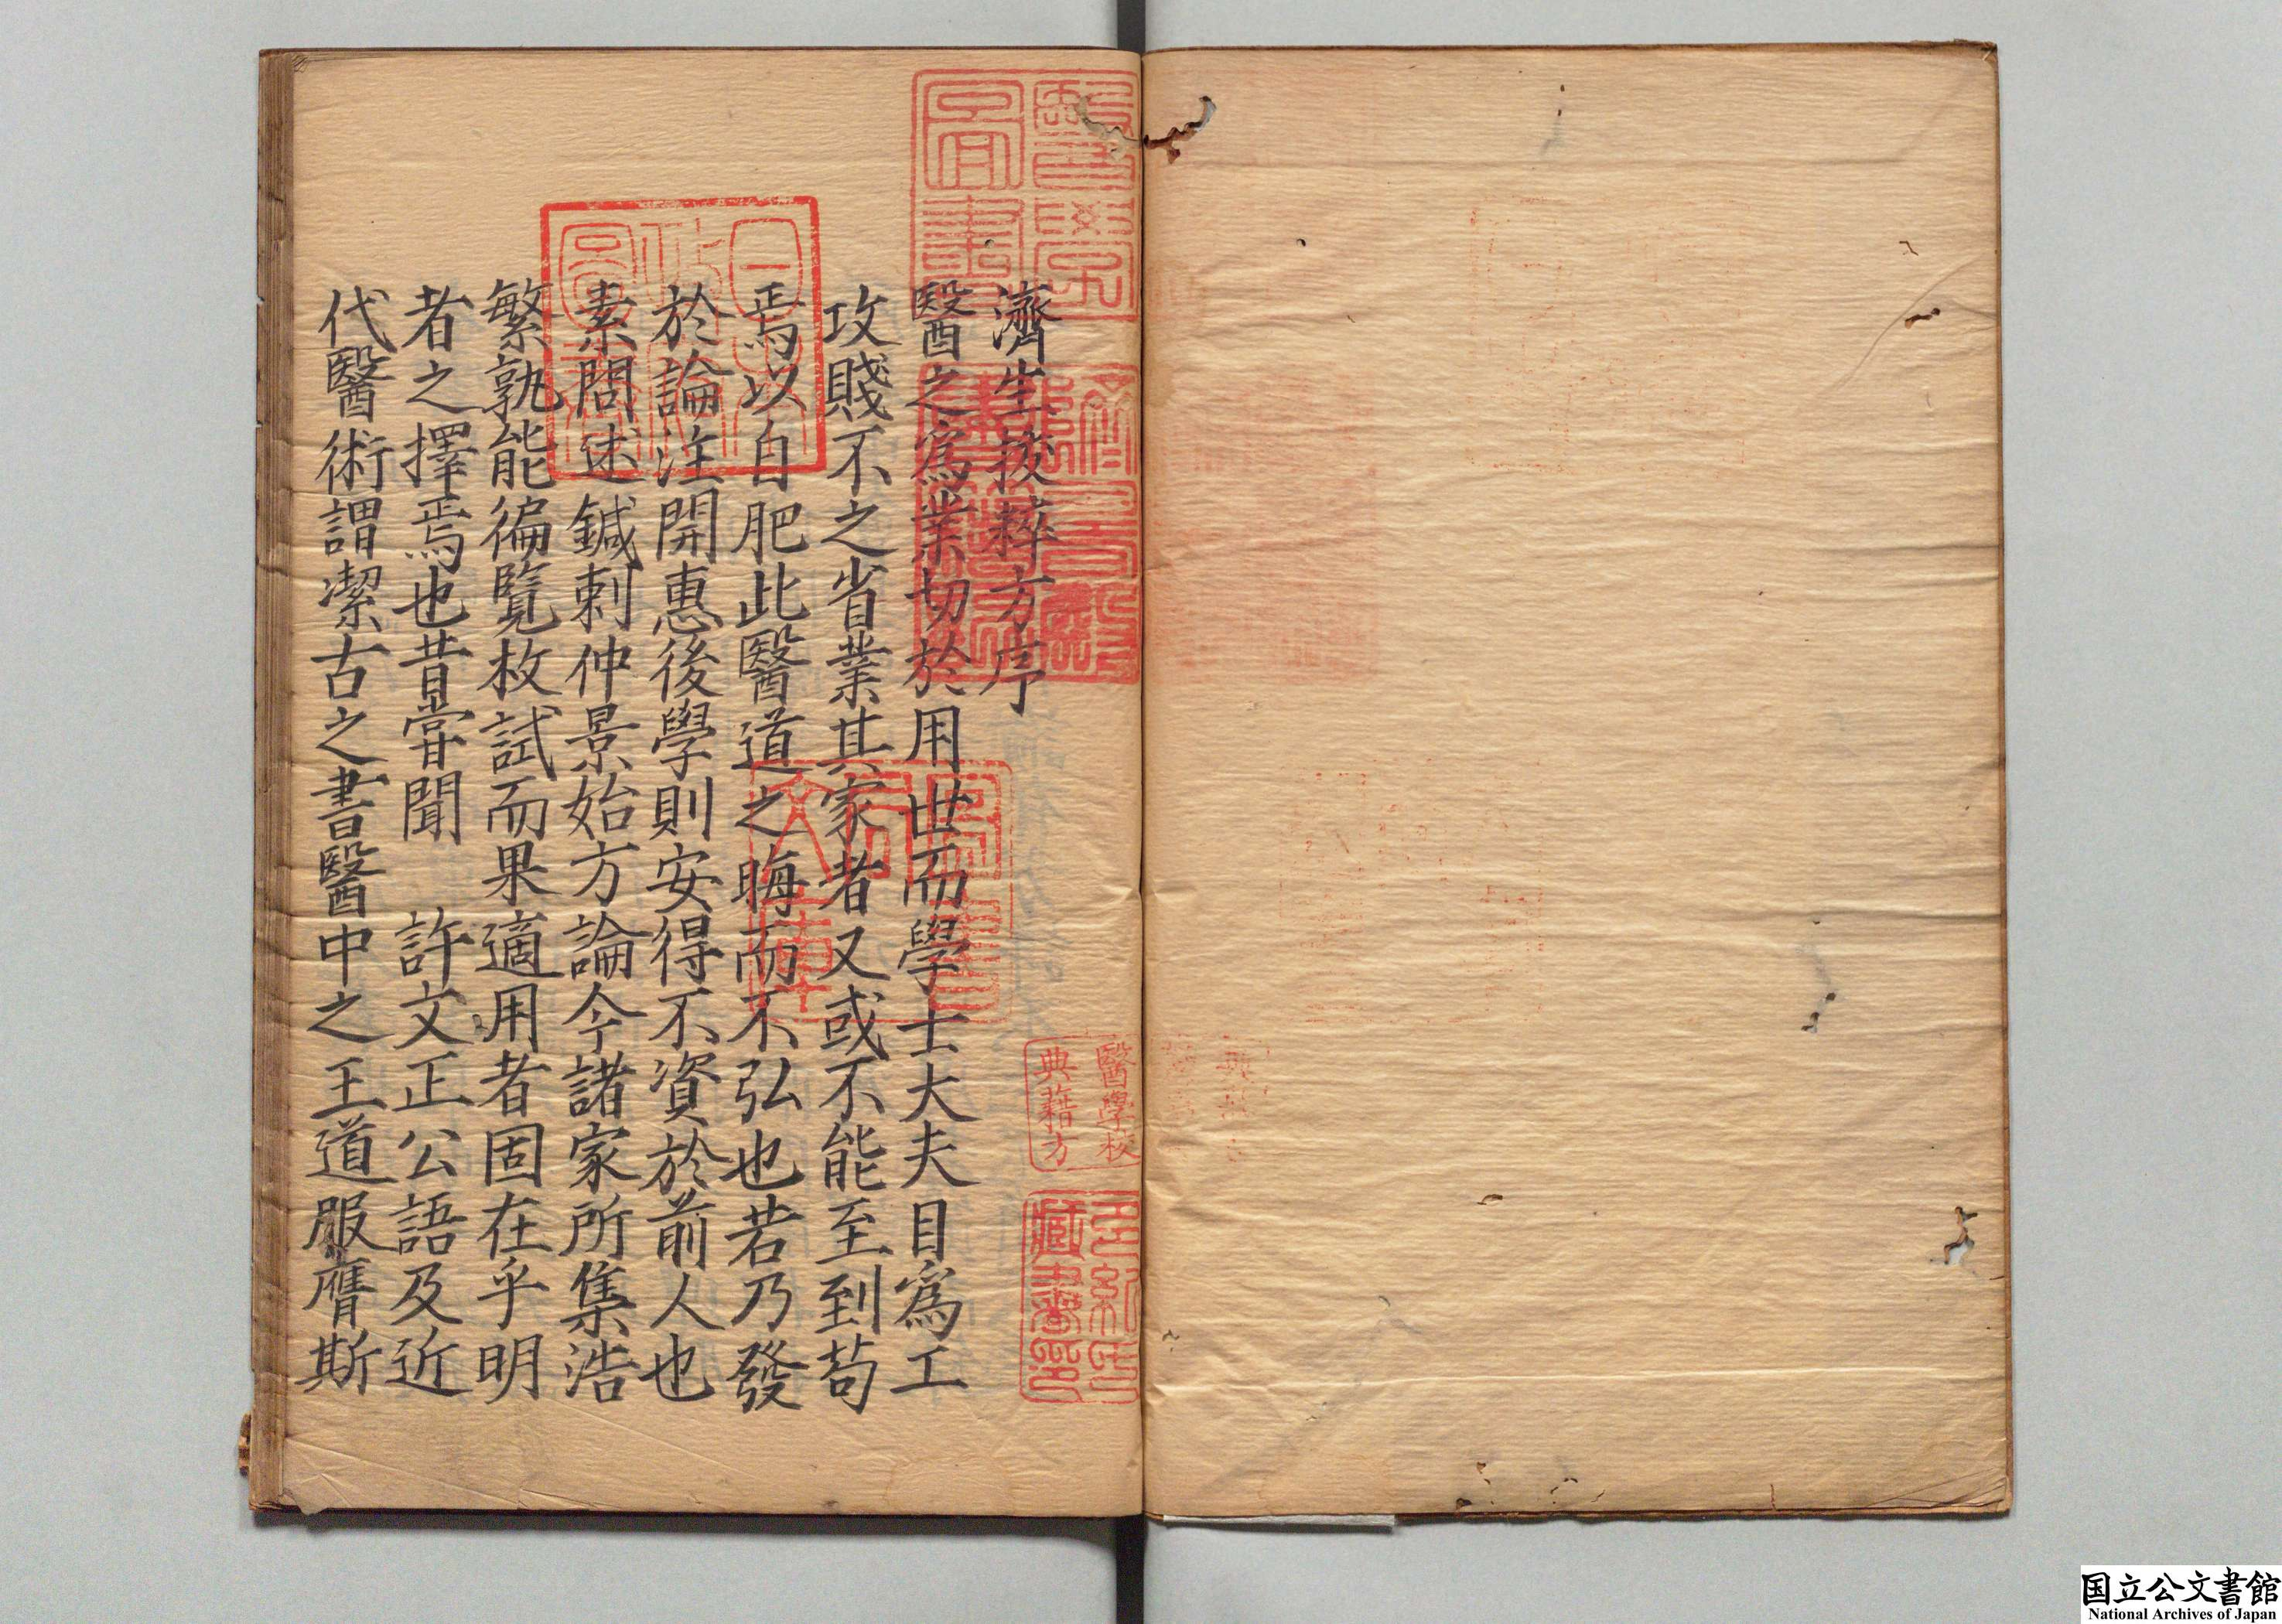 濟生拔粹方序
醫之爲業切於用世而學士大夫目爲工
攻賤不之省業其家者又或不能至到苟
焉以自肥此醫道之晦而不弘也若乃發
於論注開惠後學則安得不資於前人也
素問述鍼刺仲景始方論今諸家所集浩
繁孰能徧覽枚試而果適用者固在乎明
者之擇焉也昔甞聞 許文正公語及近
代醫術謂潔古之書醫中之王道服膺斯
醫學圖書
躋壽殿書籍記
日本政府圖書
多紀氏藏書印
醫學校
典籍方
国立公文書館
National Archives of Japan